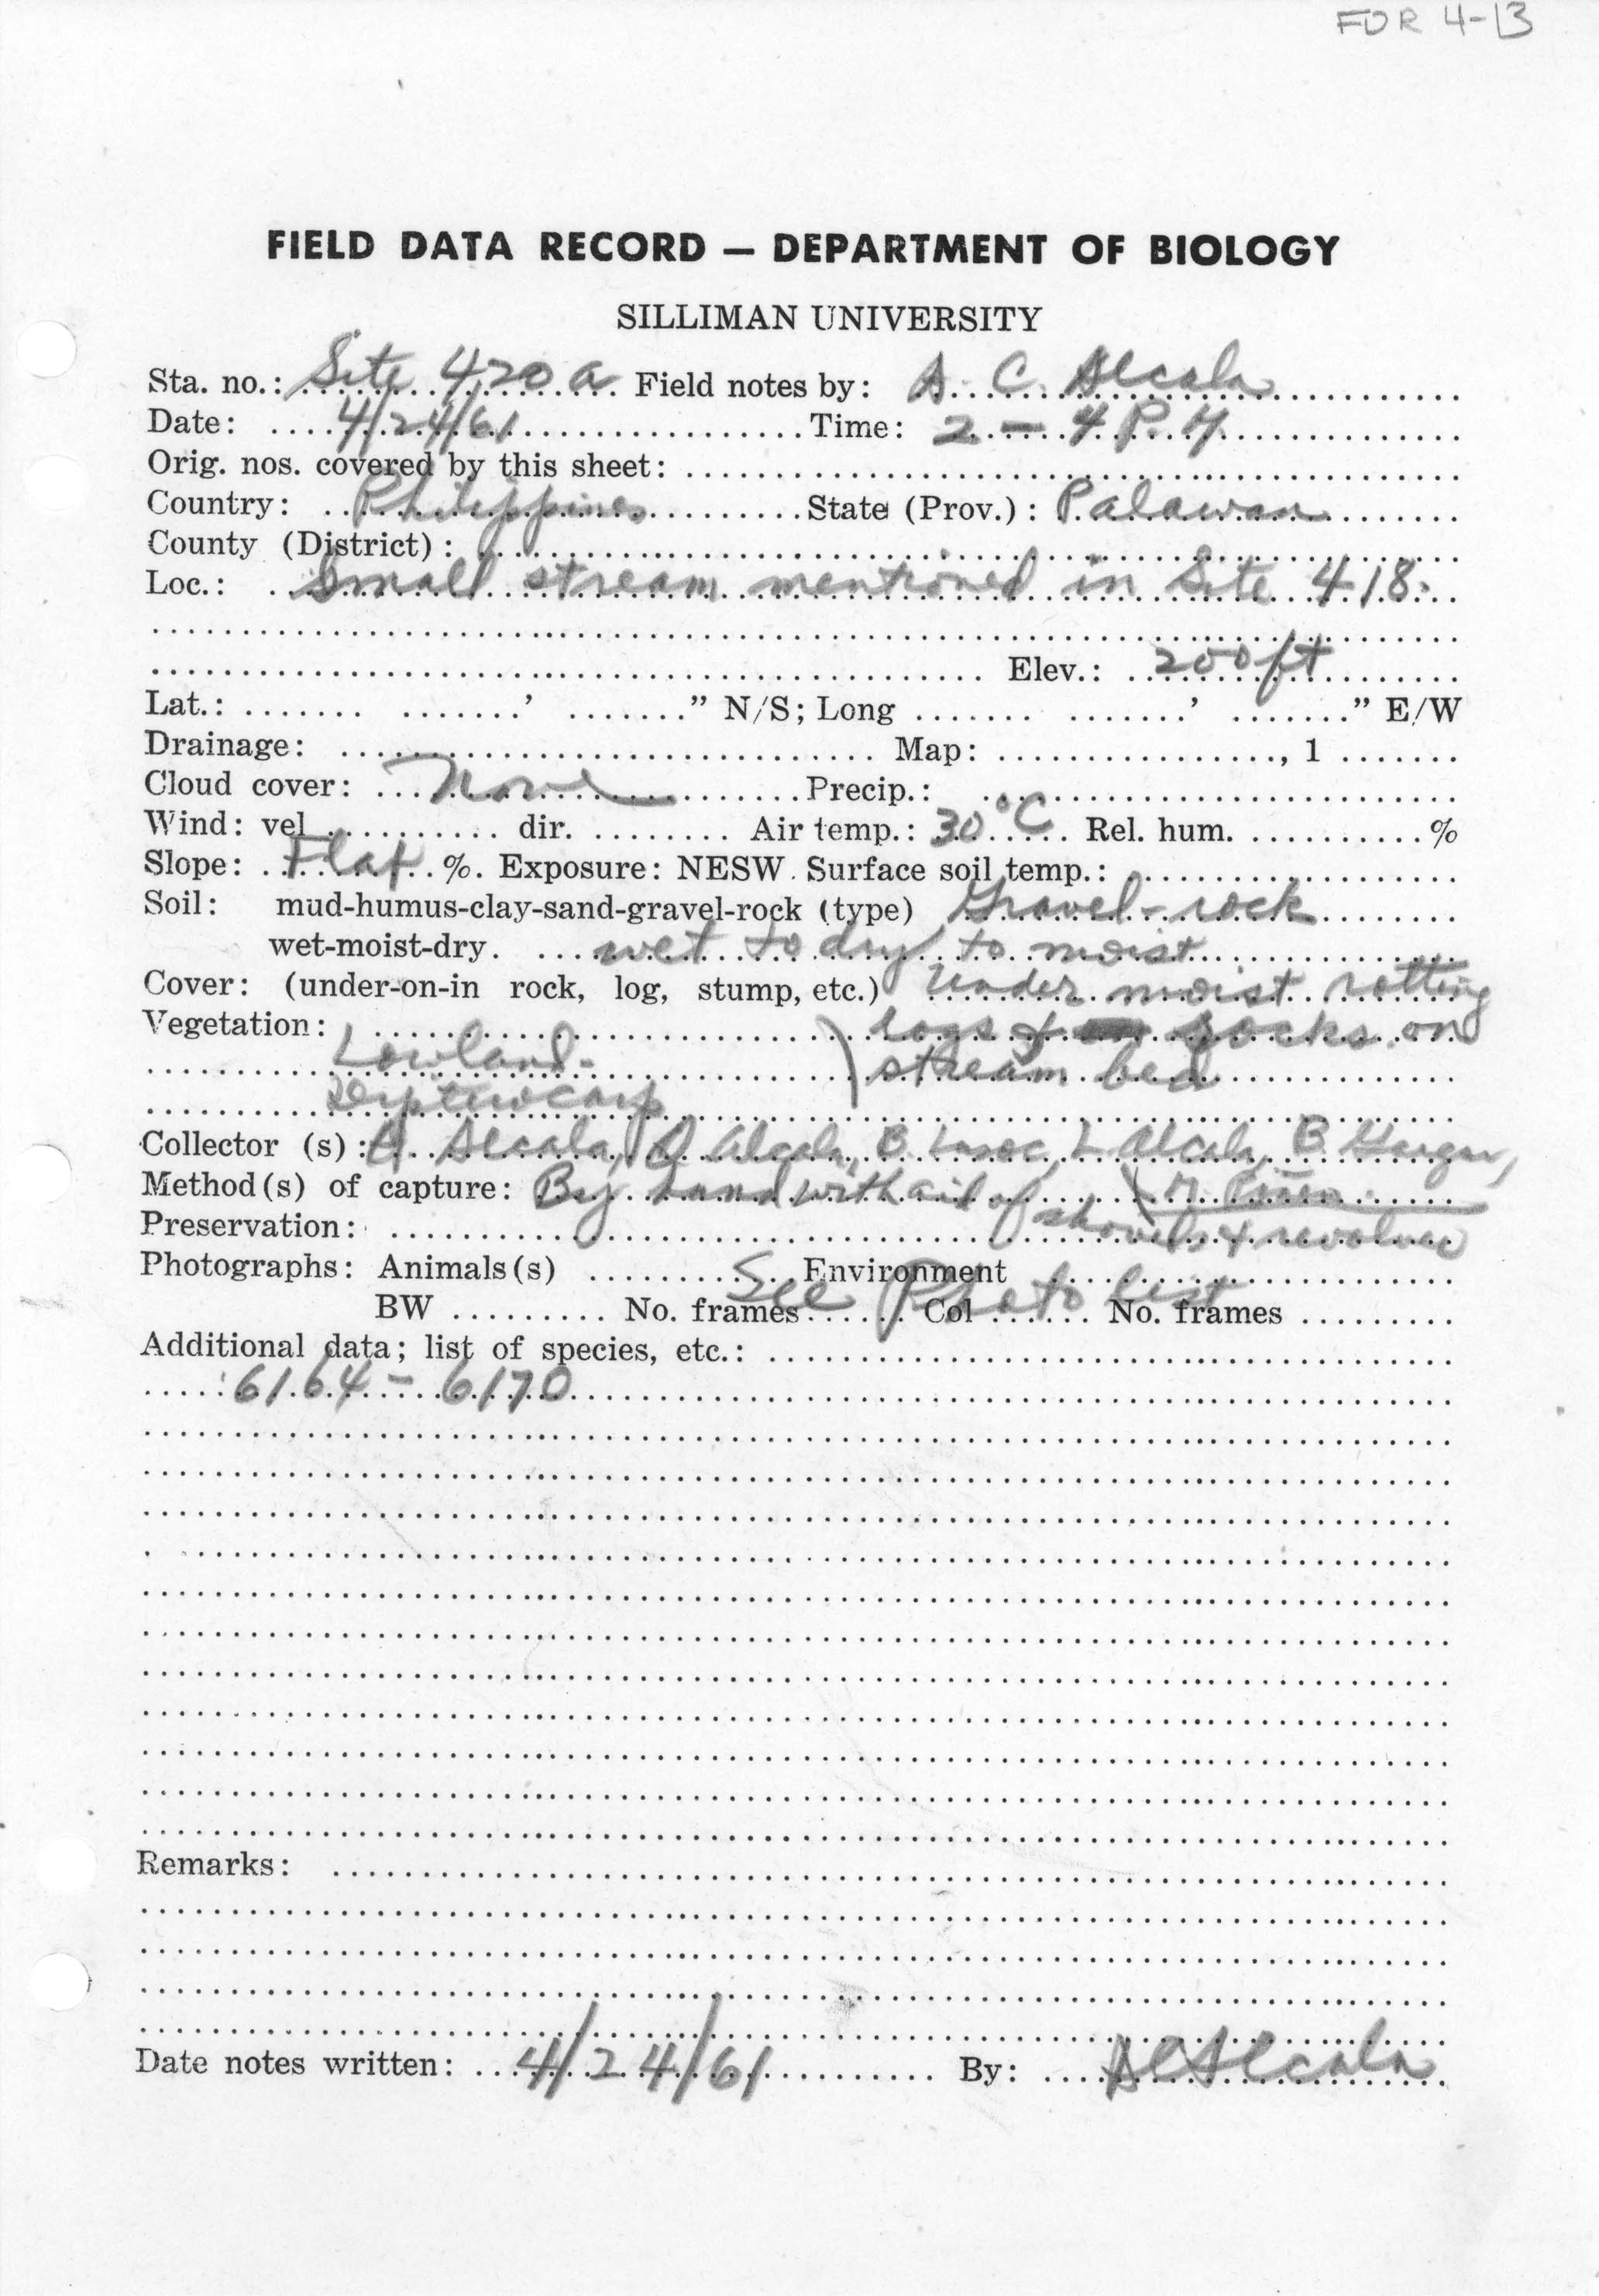 FDR 4-13
FIELD DATA RECORD — DEPARTMENT OF BIOLOGY
SILLIMAN UNIVERSITY
Sta. no.: Site 420a Field notes by: A. C. Alcala
Date: 4/24/61 Time: 2 - 4 P.M
Orig. nos. covered by this sheet:
Country: Philippines State (Prov.): Palawan
County (District):
Loc.: Small stream mentioned in Site 418.
Elev.: 200 ft
Lat.: ' " N/S; Long ' " E/W
Drainage: Map: , 1
Cloud cover: None Precip.:
Wind: vel dir. Air temp.: 30°C Rel. hum. %
Slope: Flat %. Exposure: NESW. Surface soil temp.:
Soil: mud-humus-clay-sand-gravel-rock (type) Gravel-rock
wet-moist-dry. wet to dry to moist
Cover: (under-on-in rock, log, stump, etc.) Under moist rotting
Vegetation: logs & rocks on
Lowland- stream bed
Dipterocarp
Collector (s): A. Alcala, Alcala, L Alcala, B.
Method(s) of capture: By hand with aid of
Preservation: shovels & revolver
Photographs: Animals(s) See Photo list Environment
BW No. frames Col No. frames
Additional data; list of species, etc.:
6164 - 6170
Remarks:
Date notes written: 4/24/61 By: ACAlcala